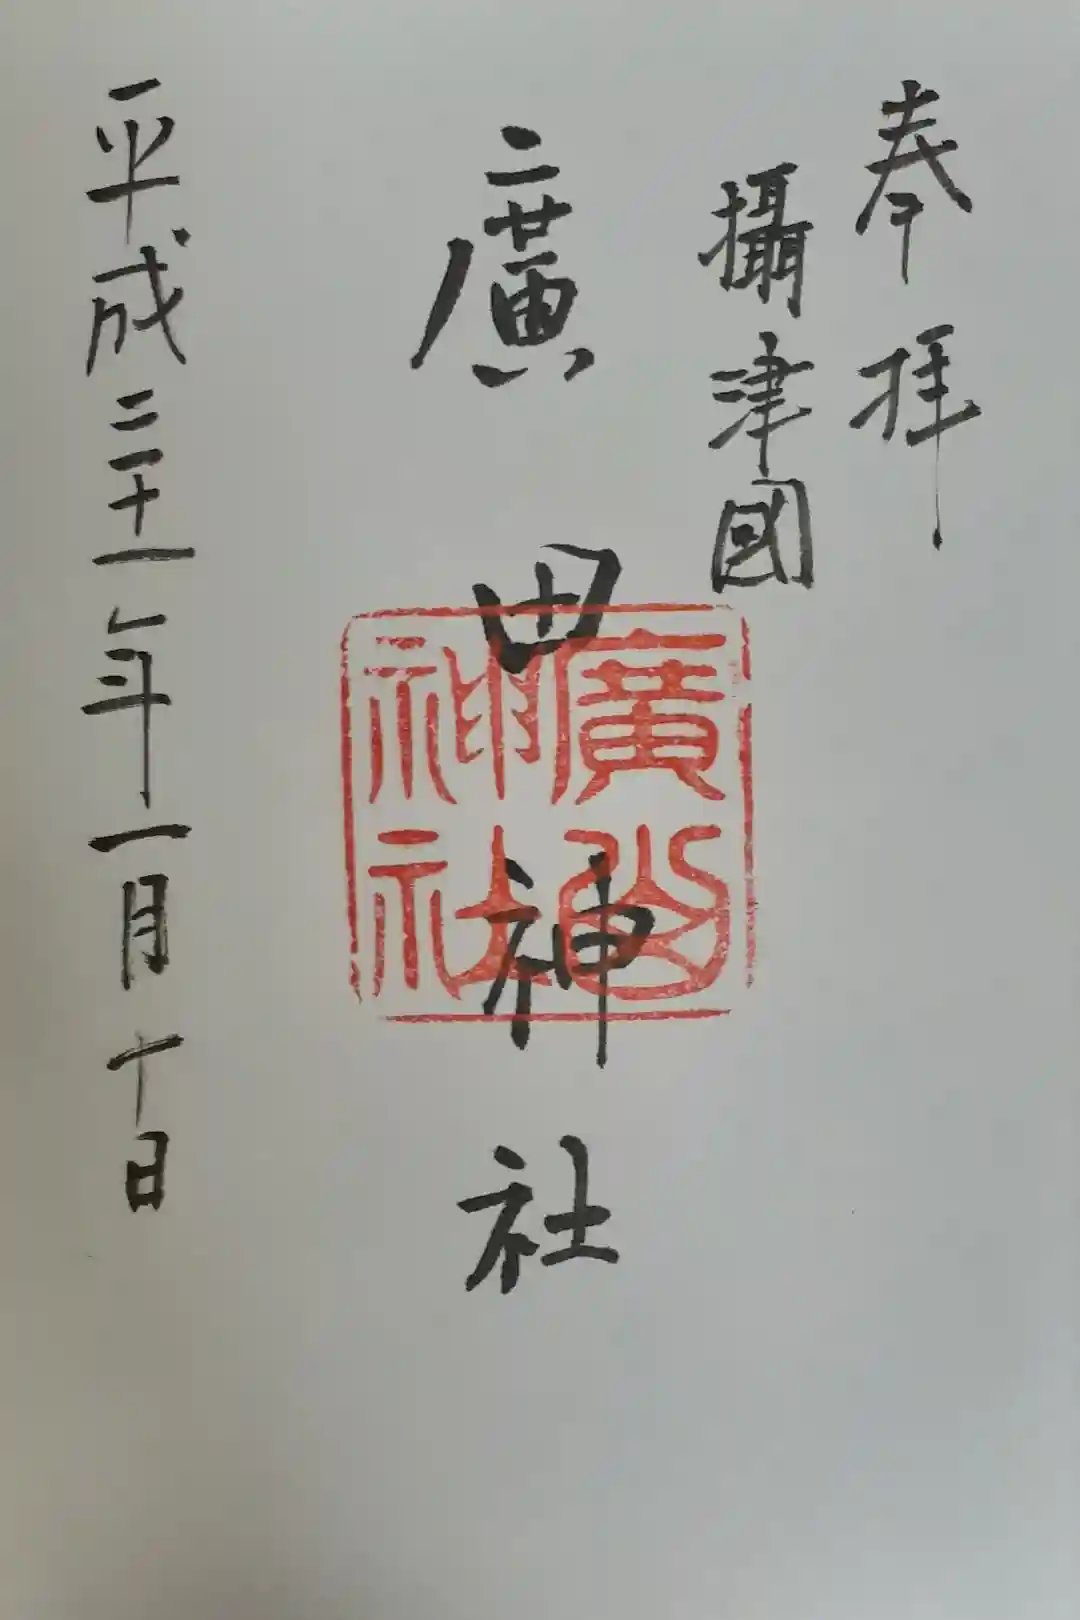 奉拝
攝津國
廣田神社
廣田神社
平成三十一年一月十日